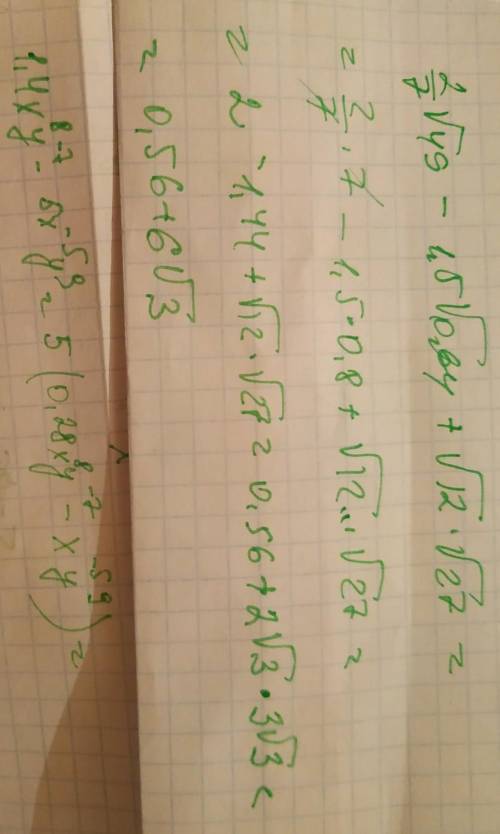 2/7 √49 - 1,5√0,64 + √12 · √27 =
= 2/7 · 7 - 1,5 · 0,8 + √12 · √27 =
= 2 - 1,44 + √12 · √27 = 0,56 + 2√3 · 3√3 =
= 0,56 + 6√3
1,4x⁸y⁻⁷ - 5x⁻⁵y⁹ = 5(0,28x⁸y⁻⁷ - x⁻⁵y⁹) =